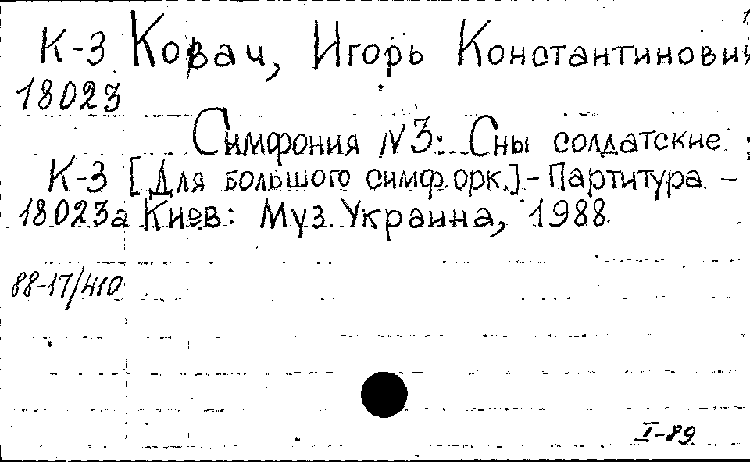 К-3 Ковач, Игорь Константинович
18023
Симфония №3: Сны солдатские :
К-3 [Для большого симф.орк.] - Партитура –
18023а Киев: Муз. Украина, 1988
88-17/410
I-89